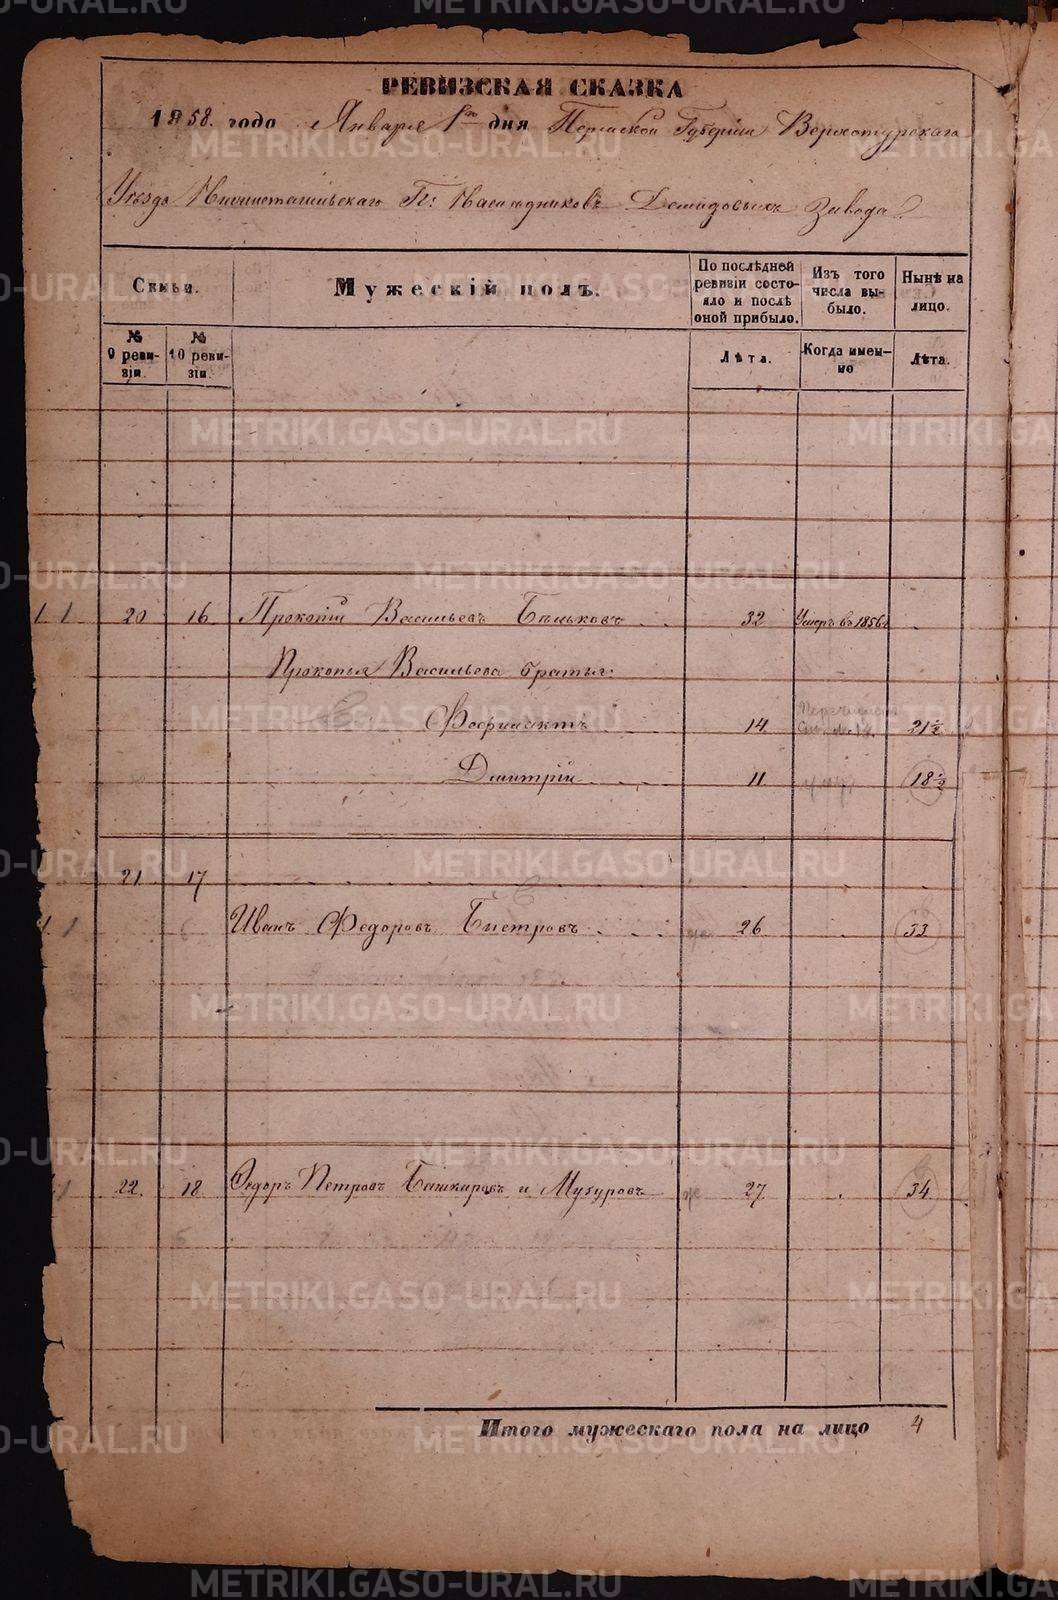 РЕВИЗСКАЯ СКАЗКА
1858. года Января 1го дня Пермской Губернии Верхотурскаго
Уѣзда Нижнетагильскаго Гг: Наслѣдниковъ Демидовыхъ завода
Семьи.
Мужескій полъ.
По послѣдней ревизіи состояло и послѣ оной прибыло.
Изъ того числа выбыло.
Нынѣ на лицо.
№ 9 ревизіи.
№ 10 ревизіи.
Лѣта.
Когда именно
Лѣта.
1 1 20 16 Прокопій Васильевъ Бѣльковъ 32 Умеръ въ 1856
Прокопья Васильева братья:
Феофилактъ 14 21½
Дмитрій 11 18½
21 17
1 1 Иванъ Федоровъ Быстровъ 26 33
1 22. 18 Федоръ Петровъ Башкировъ и Мухуровъ 27 34
Итого мужескаго пола на лицо 4
METRIKI.GASO-URAL.RU